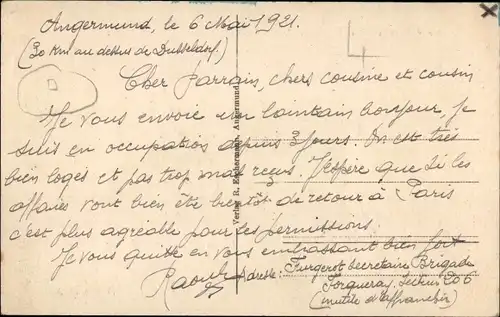 Angermund, le 6 Mai 1921.
(30 Km au dessus de Dusseldorf.)
Cher Parrain, chers cousine et cousin
Je vous envoie un lointain bonjour, je
suis en occupation depuis 3 jours. On est très
bien logés et pas trop mal reçus. J'espère que si les
affaires vont bien être bientôt de retour à Paris
c'est plus agréable pour les permissions.
Je vous quitte en vous embrassant bien fort
Raoul
Adresse: Furgerot Secrétaire Brigade
Forqueray, Secteur 206
(inutile d'affranchir)
Verlag R. Angermund